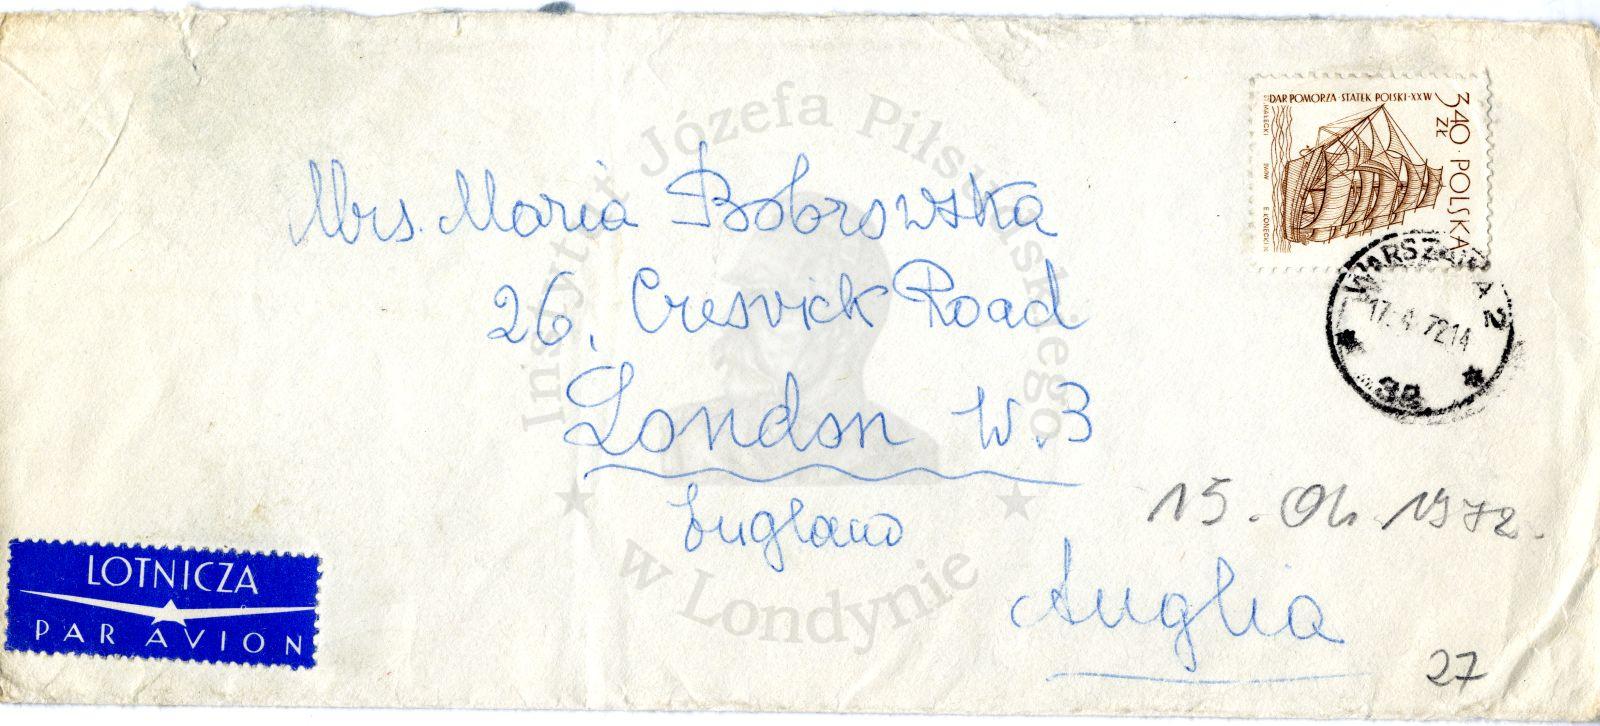 DAR POMORZA · STATEK POLSKI · XX W
3,40 ZŁ · POLSKA
ST. MAŁECKI PWPW E. KONECKI
WARSZAWA 2
17.-4.-72 14
Mrs. Maria Bobrowska
26, Creswick Road
London W.3
England
15. 04. 1972.
Anglia
27
LOTNICZA
PAR AVION
Instytut Józefa Piłsudskiego
w Londynie